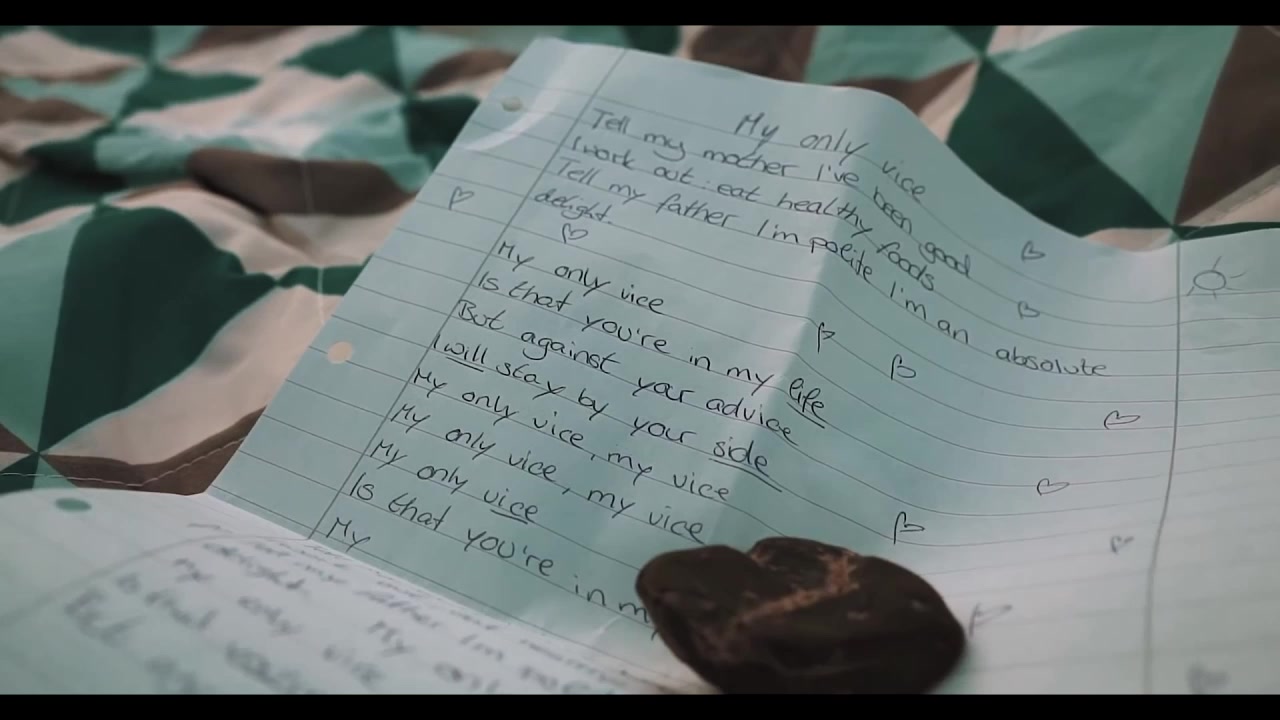 My only vice
Tell my mother I've been good
I work out eat healthy foods
Tell my father I'm polite I'm an absolute
delight
My only vice
Is that you're in my life
But against your advice
I will stay by your side
My only vice, my vice
My only vice, my vice
My only vice
Is that you're in
My
delight
My only vice
Is that
But
My